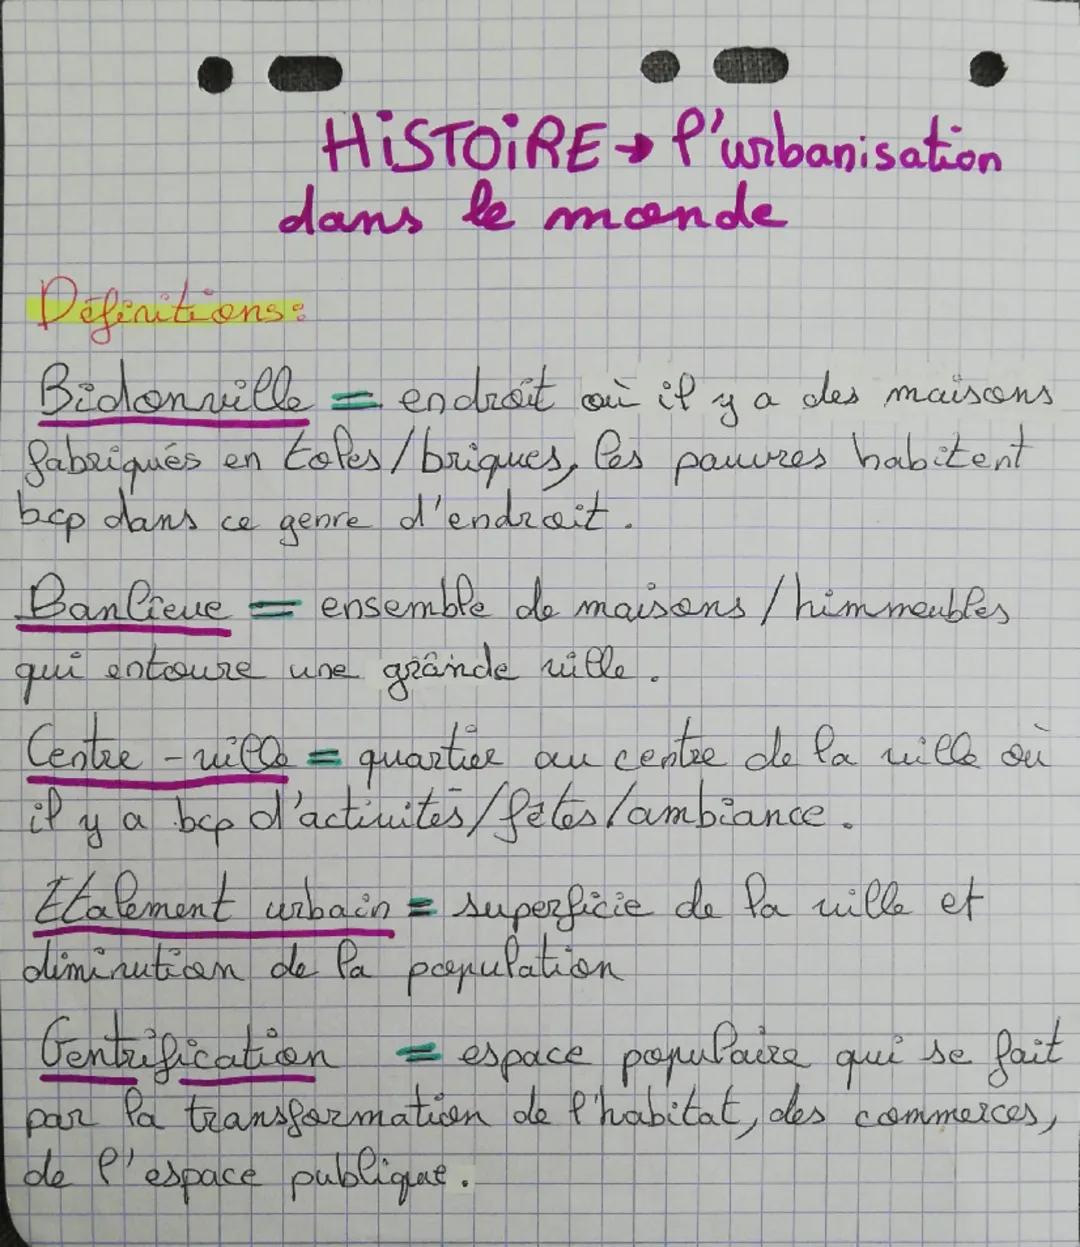 HiSTOiRE → l'urbanisation
dans le monde
Définitions:
Bidonville = endroit où il y a des maisons
fabriqués en toles/briques, les pauvres habitent
bcp dans ce genre d'endroit.
Banlieue = ensemble de maisons/himmeubles
qui entoure une grande ville.
Centre-ville = quartier au centre de la ville où
il y a bcp d'activités/fêtes/ambiance.
Etalement urbain = superficie de la ville et
diminution de la population
Gentrification = espace populaire qui se fait
par la transformation de l'habitat, des commerces,
de l'espace publique.